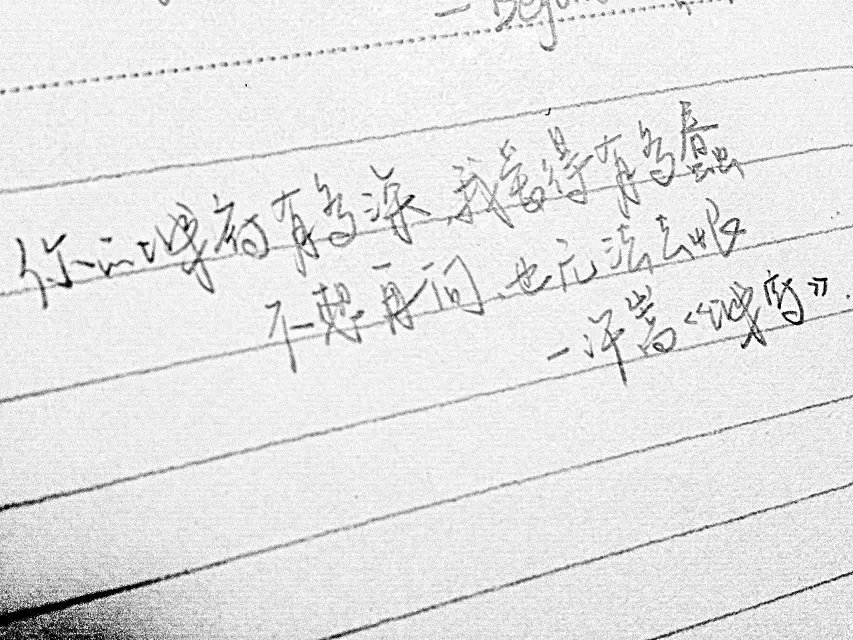 你的城府有多深,我爱得有多蠢
不想再问、也无法去恨
—许嵩《城府》.